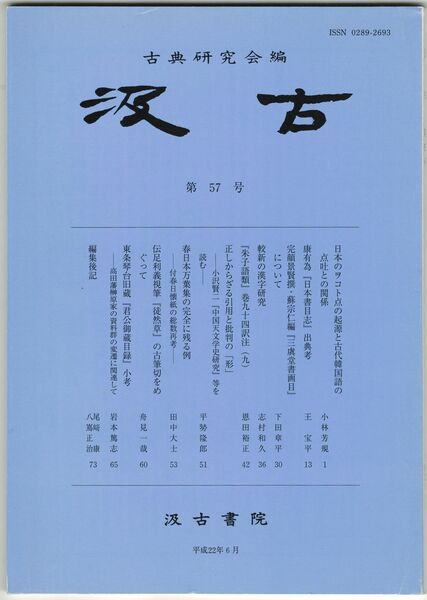 ISSN 0289-2693
古典研究会編
汲古
第57号
日本のヲコト点の起源と古代韓国語の
点吐との関係 小林芳規 1
康有為『日本書目志』出典考 王宝平 13
完顔景賢撰・蘇宗仁編『三虞堂書画目』
について 下田章平 30
較新の漢字研究 志村和久 36
『朱子語類』巻九十四訳注(九) 恩田裕正 42
正しからざる引用と批判の「形」
——小沢賢二『中国天文学史研究』等を
読む—— 平勢隆郎 51
春日本万葉集の完全に残る例
——付春日懐紙の総数再考—— 田中大士 53
伝足利義視筆『徒然草』の古筆切をめ
ぐって 舟見一哉 60
東条琴台旧蔵『君公御蔵目録』小考
——高田藩榊原家の資料群の変遷に関連して 岩本篤志 65
編集後記 尾崎康
八嶌正治 73
汲古書院
平成22年6月